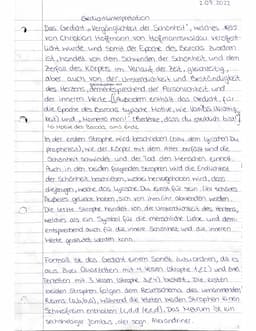 2.09.2022
Gedichtinterpretation
Das Gedicht „Vergänglichkeit der Schönheit", welches 1695
von Christian Hoffmann von Hofmannswaldau veröffent-
licht wurde und somit der Epoche des Barocks zuzuordnen
ist, handelt von dem Schwinden der Schönheit und dem
Zerfall des Körpers im Verlauf der Zeit, gleichzeitig
aber auch von der Unvergänglichkeit und Beständigkeit
des Herzens, dementsprechend der Persönlichkeit und
der inneren Werte. Außerdem enthält das Gedicht, für
die Epoche des Barocks typische Motive, wie Vanitas
und „Memento mori" (Bedenke, dass du sterblich bist)
In der ersten Strophe wird beschrieben
wie der Körper mit dem Alter zerfällt und die
Schönheit schwindet und der Tod den Menschen einholt.
Auch in den beiden folgenden Strophen wird die Endlichkeit
der Schönheit beschrieben,
von ihm abwenden werden.
Die letzte Strophe handelt von der Unvergänglichkeit des Herzens,
welches als ein Symbol für die menschliche Liebe und dem-
entsprechend auch für die innere Schönheit und die inneren
Werte gedeutet werden kann.
Formal ist das Gedicht einem Sonett zuzuordnen, da es
aus zwei Quartetten mit 4 Versen (Strophe 1,2) und zwei
Terzetten mit 3 Versen (Strophe 3,4) besteht. Die ersten
beiden Strophen folgen dem Reimschema des umarmenden
Reims (a,b,b,a), während die letzten beiden Strophen einen
Schweifreim enthalten. Das Metrum ist ein
sechshebiger Jambus, also sogn. Alexandriner.